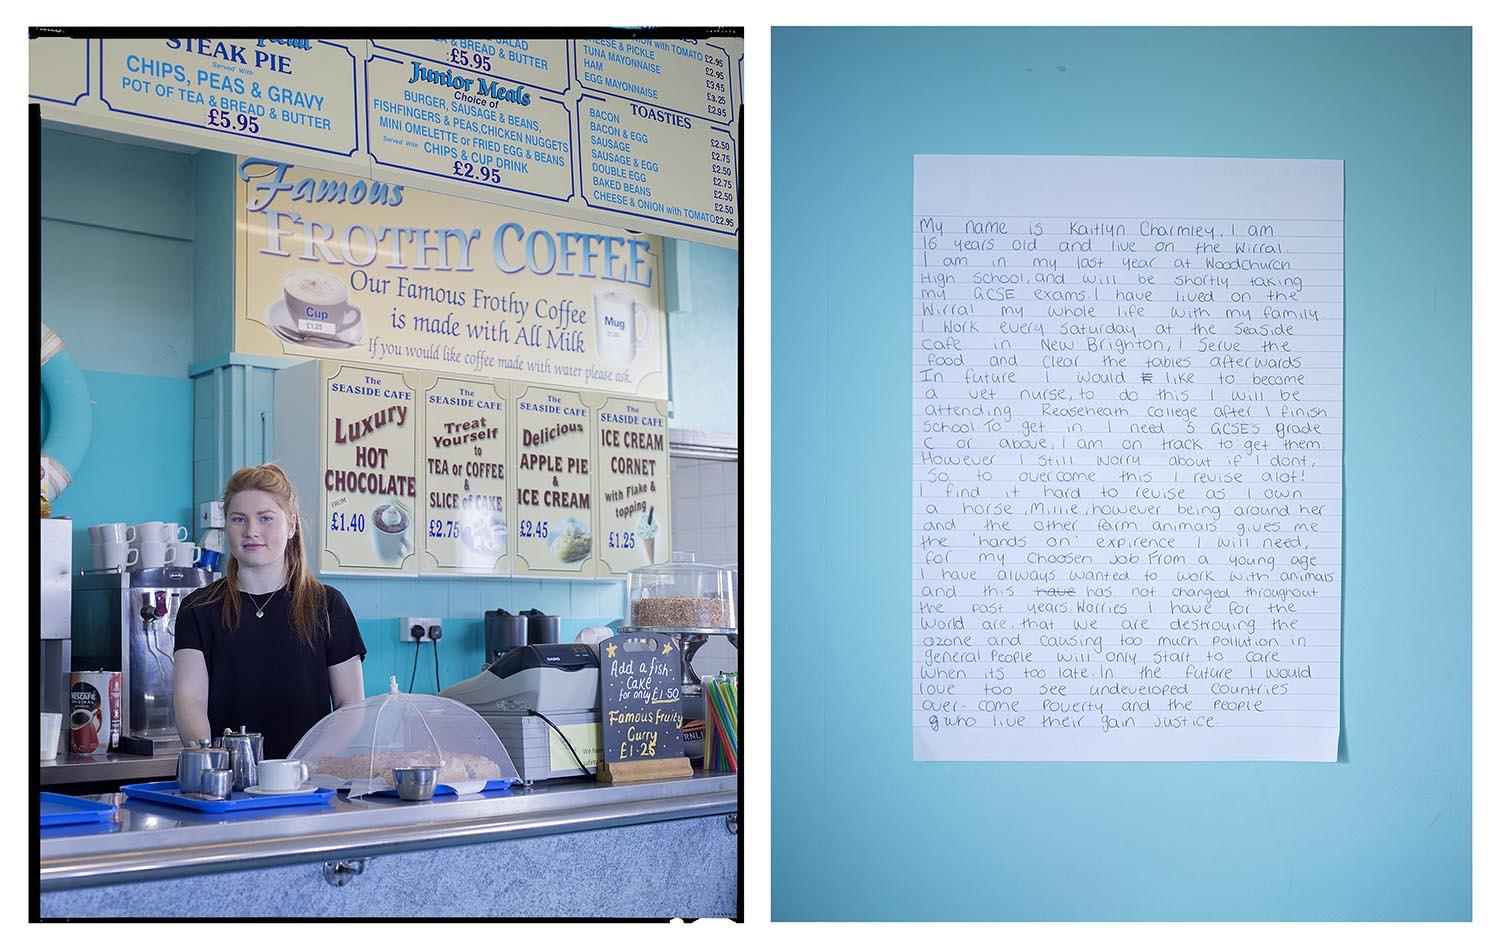 Special
STEAK PIE
Served With
CHIPS, PEAS & GRAVY
POT OF TEA & BREAD & BUTTER
£5.95
& SALAD
& BREAD & BUTTER
£5.95
Junior Meals
Choice of
BURGER, SAUSAGE & BEANS,
FISHFINGERS & PEAS,CHICKEN NUGGETS
MINI OMELETTE or FRIED EGG & BEANS
Served With CHIPS & CUP DRINK
£2.95
ONION with TOMATO £2.95
CHEESE & PICKLE £2.95
TUNA MAYONNAISE £3.45
HAM £3.25
EGG MAYONNAISE £2.95
TOASTIES
BACON £2.50
BACON & EGG £2.75
SAUSAGE £2.50
SAUSAGE & EGG £2.75
DOUBLE EGG £2.50
BAKED BEANS £2.50
CHEESE & ONION with TOMATO £2.95
Famous
FROTHY COFFEE
Our Famous Frothy Coffee
is made with All Milk
If you would like coffee made with water please ask.
Cup
£1.25
Mug
The
SEASIDE CAFE
Luxury
HOT
CHOCOLATE
FROM
£1.40
The
SEASIDE CAFE
Treat
Yourself
to
TEA or COFFEE
&
SLICE of CAKE
£2.75
The
SEASIDE CAFE
Delicious
APPLE PIE
&
ICE CREAM
£2.45
The
SEASIDE CAFE
ICE CREAM
CORNET
with Flake &
topping
£1.25
NESCAFÉ
ORIGINAL
CASIO
Add a fish-
cake
for only £1.50
Famous Fruity
Curry
£1.25
We have
safety
My name is Kaitlyn Charmley, I am
16 years old and live on the Wirral.
I am in my last year at Woodchurch
High School, and will be shortly taking
my GCSE exams. I have lived on the
Wirral my whole life with my family.
I work every saturday at the seaside
cafe in New Brighton, I serve the
food and clear the tables afterwards.
In future I would like to become
a vet nurse, to do this I will be
attending Reaseheath College after I finish
school. To get in I need 5 GCSE's grade
C or above, I am on track to get them.
However I still worry about if I dont,
So to overcome this I revise alot!
I find it hard to revise as I own
a horse, Millie, however being around her
and the other farm animals gives me
the 'hands on' expirence I will need,
for my choosen job. From a young age
I have always wanted to work with animals
and this have has not changed throughout
the past years. Worries I have for the
world are, that we are destroying the
ozone and causing too much pollution in
general. People will only start to care
when its too late. In the future I would
love too see undeveloped countries
over-come Poverty and the People
who live their gain justice.